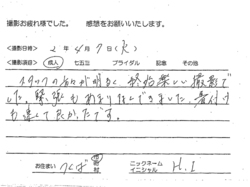 撮影お疲れ様でした。 感想をお願いいたします。
<撮影日時> 2年4月7日(火)
<撮影項目> 成人 七五三 ブライダル 記念 その他
スタッフの方が明るく終始楽しい撮影で
した。緊張もあまりせずできました。着付け
も速くて良かったです。
お住まい つくば 市 町 村 ニックネーム イニシャル H.I